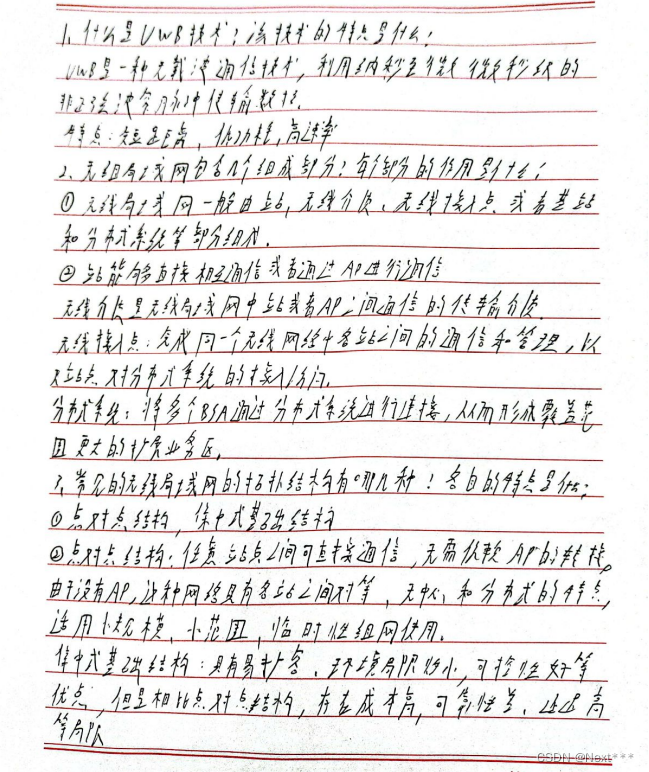 1、什么是UWB技术?该技术的特点是什么?
UWB是一种无载波通信技术,利用纳秒至微微秒级的
非正弦波窄脉冲传输数据.
特点:短距离,低功耗,高速率
2、无线局域网包含几个组成部分?每个部分的作用是什么?
①无线局域网一般由站,无线介质、无线接入点、或者基站
和分布式系统等部分组成.
②站能够直接相互通信或者通过AP进行通信
无线介质是无线局域网中站或者AP之间通信的传输介质.
无线接入点:完成同一个无线网络中各站之间的通信和管理,以
及站点对分布式系统的接入访问.
分布式系统:将多个BSA通过分布式系统进行连接,从而形成覆盖范
围更大的扩展业务区.
3、常见的无线局域网的拓扑结构有哪几种?各自的特点是什么?
①点对点结构,集中式基础结构
②点对点结构:任意站点之间可直接通信,无需依赖AP的转接。
由于没有AP,这种网络具有各站之间对等、无中心和分布式的特点,
适用小规模、小范围,临时性组网使用.
集中式基础结构:具有易扩容、环境局限小,可控性好等
优点,但是相比点对点结构,存在成本高,可靠性差、延迟高
等局限
CSDN @Next***